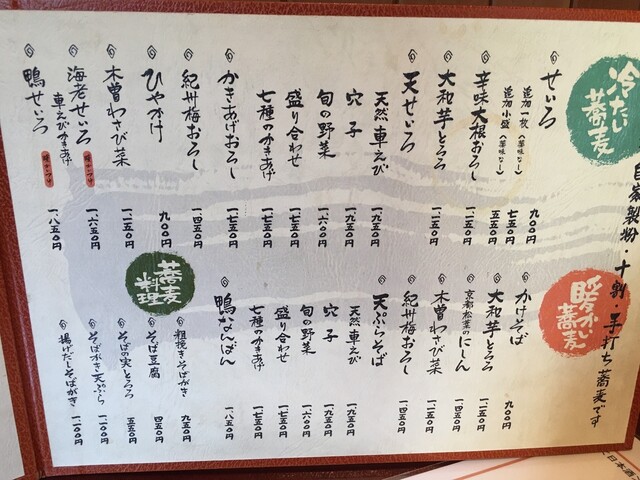 自家製粉・十割・手打ち蕎麦です
冷たい蕎麦
せいろ 九〇〇円
追加一枚（薬味なし） 七五〇円
追加小盛（薬味なし） 五五〇円
辛味大根おろし 一、一五〇円
大和芋とろろ 一、一五〇円
天せいろ
天然車えび 一、九五〇円
穴子 一、九五〇円
旬の野菜 一、六〇〇円
盛り合わせ 一、七五〇円
七種のかきあげ 一、七五〇円
かきあげおろし 一、七五〇円
紀州梅おろし 一、四五〇円
ひやかけ 九〇〇円
木曽わさび菜 一、一五〇円
海老せいろ 車えびかきあげ 一、六五〇円
鴨せいろ 一、八五〇円
暖かい蕎麦
かけそば 九〇〇円
大和芋とろろ 一、一五〇円
京都松葉のにしん 一、四五〇円
木曽わさび菜 一、一五〇円
紀州梅おろし 一、四五〇円
天ぷらそば
天然車えび 一、九五〇円
穴子 一、九五〇円
旬の野菜 一、六〇〇円
盛り合わせ 一、七五〇円
七種のかきあげ 一、七五〇円
鴨なんばん 一、八五〇円
蕎麦料理
粗挽きそばがき 九五〇円
そば豆腐 四五〇円
そばの実とろろ 五五〇円
そばがき天ぷら 一、一〇〇円
揚げだしそばがき 一、一〇〇円
日本酒